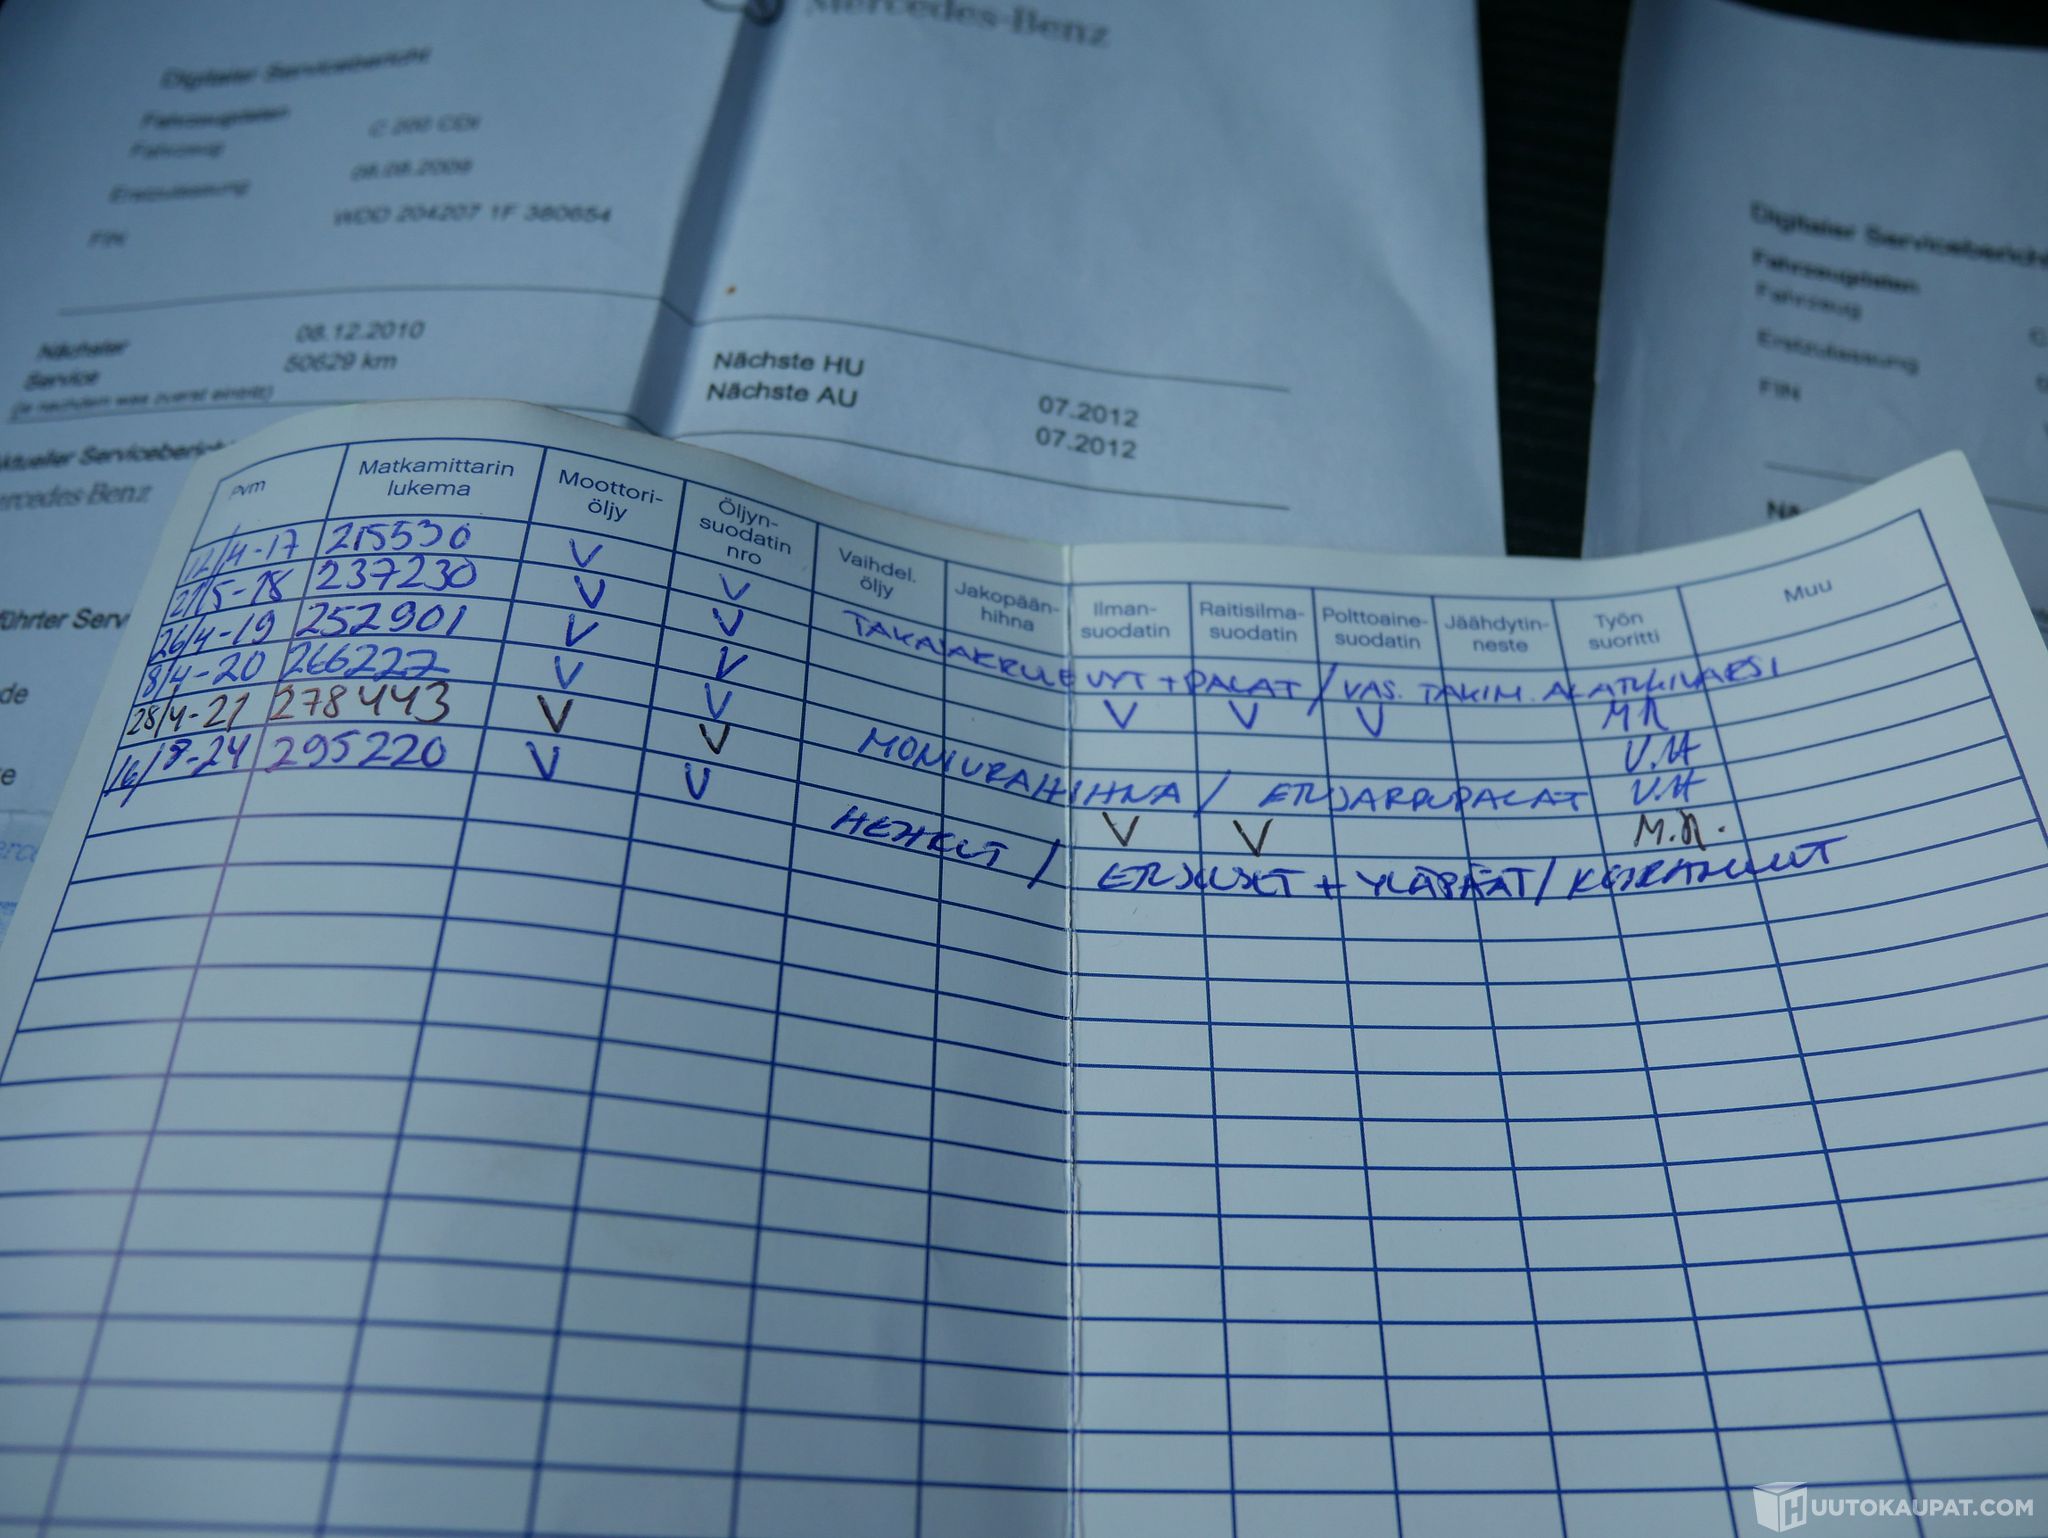 Mercedes-Benz
Digitaler Servicebericht
Fahrzeugdaten
Fahrzeug C 200 CDI
Erstzulassung 08.08.2009
FIN WDD 204207 1F 380654
Nächster Service 08.12.2010
50629 km
(je nachdem was zuerst eintritt)
Nächste HU 07.2012
Nächste AU 07.2012
Aktueller Servicebericht
Mercedes-Benz
Digitaler Servicebericht
Fahrzeugdaten
Fahrzeug
Erstzulassung
FIN
Pvm Matkamittarin lukema Moottori-öljy Öljyn-suodatin nro Vaihdel. öljy Jakopään-hihna Ilman-suodatin Raitisilma-suodatin Polttoaine-suodatin Jäähdytin-neste Työn suoritti Muu
12/4-17 215530 V V TAKAJARRULEVYT + PALAT / VAS. TAKIM. ALATUKIVARSI
21/5-18 237230 V V V V V M.N
26/4-19 252901 V V V.H
8/4-20 266227 V V MONIURAHIHNA / ETUJARRUPALAT V.H
28/4-21 278443 V V V V M.N.
16/8-24 295220 V V HEHKUT / ETUISKUT + YLÄPÄÄT / KOIRANLUUT
HUUTOKAUPAT.COM